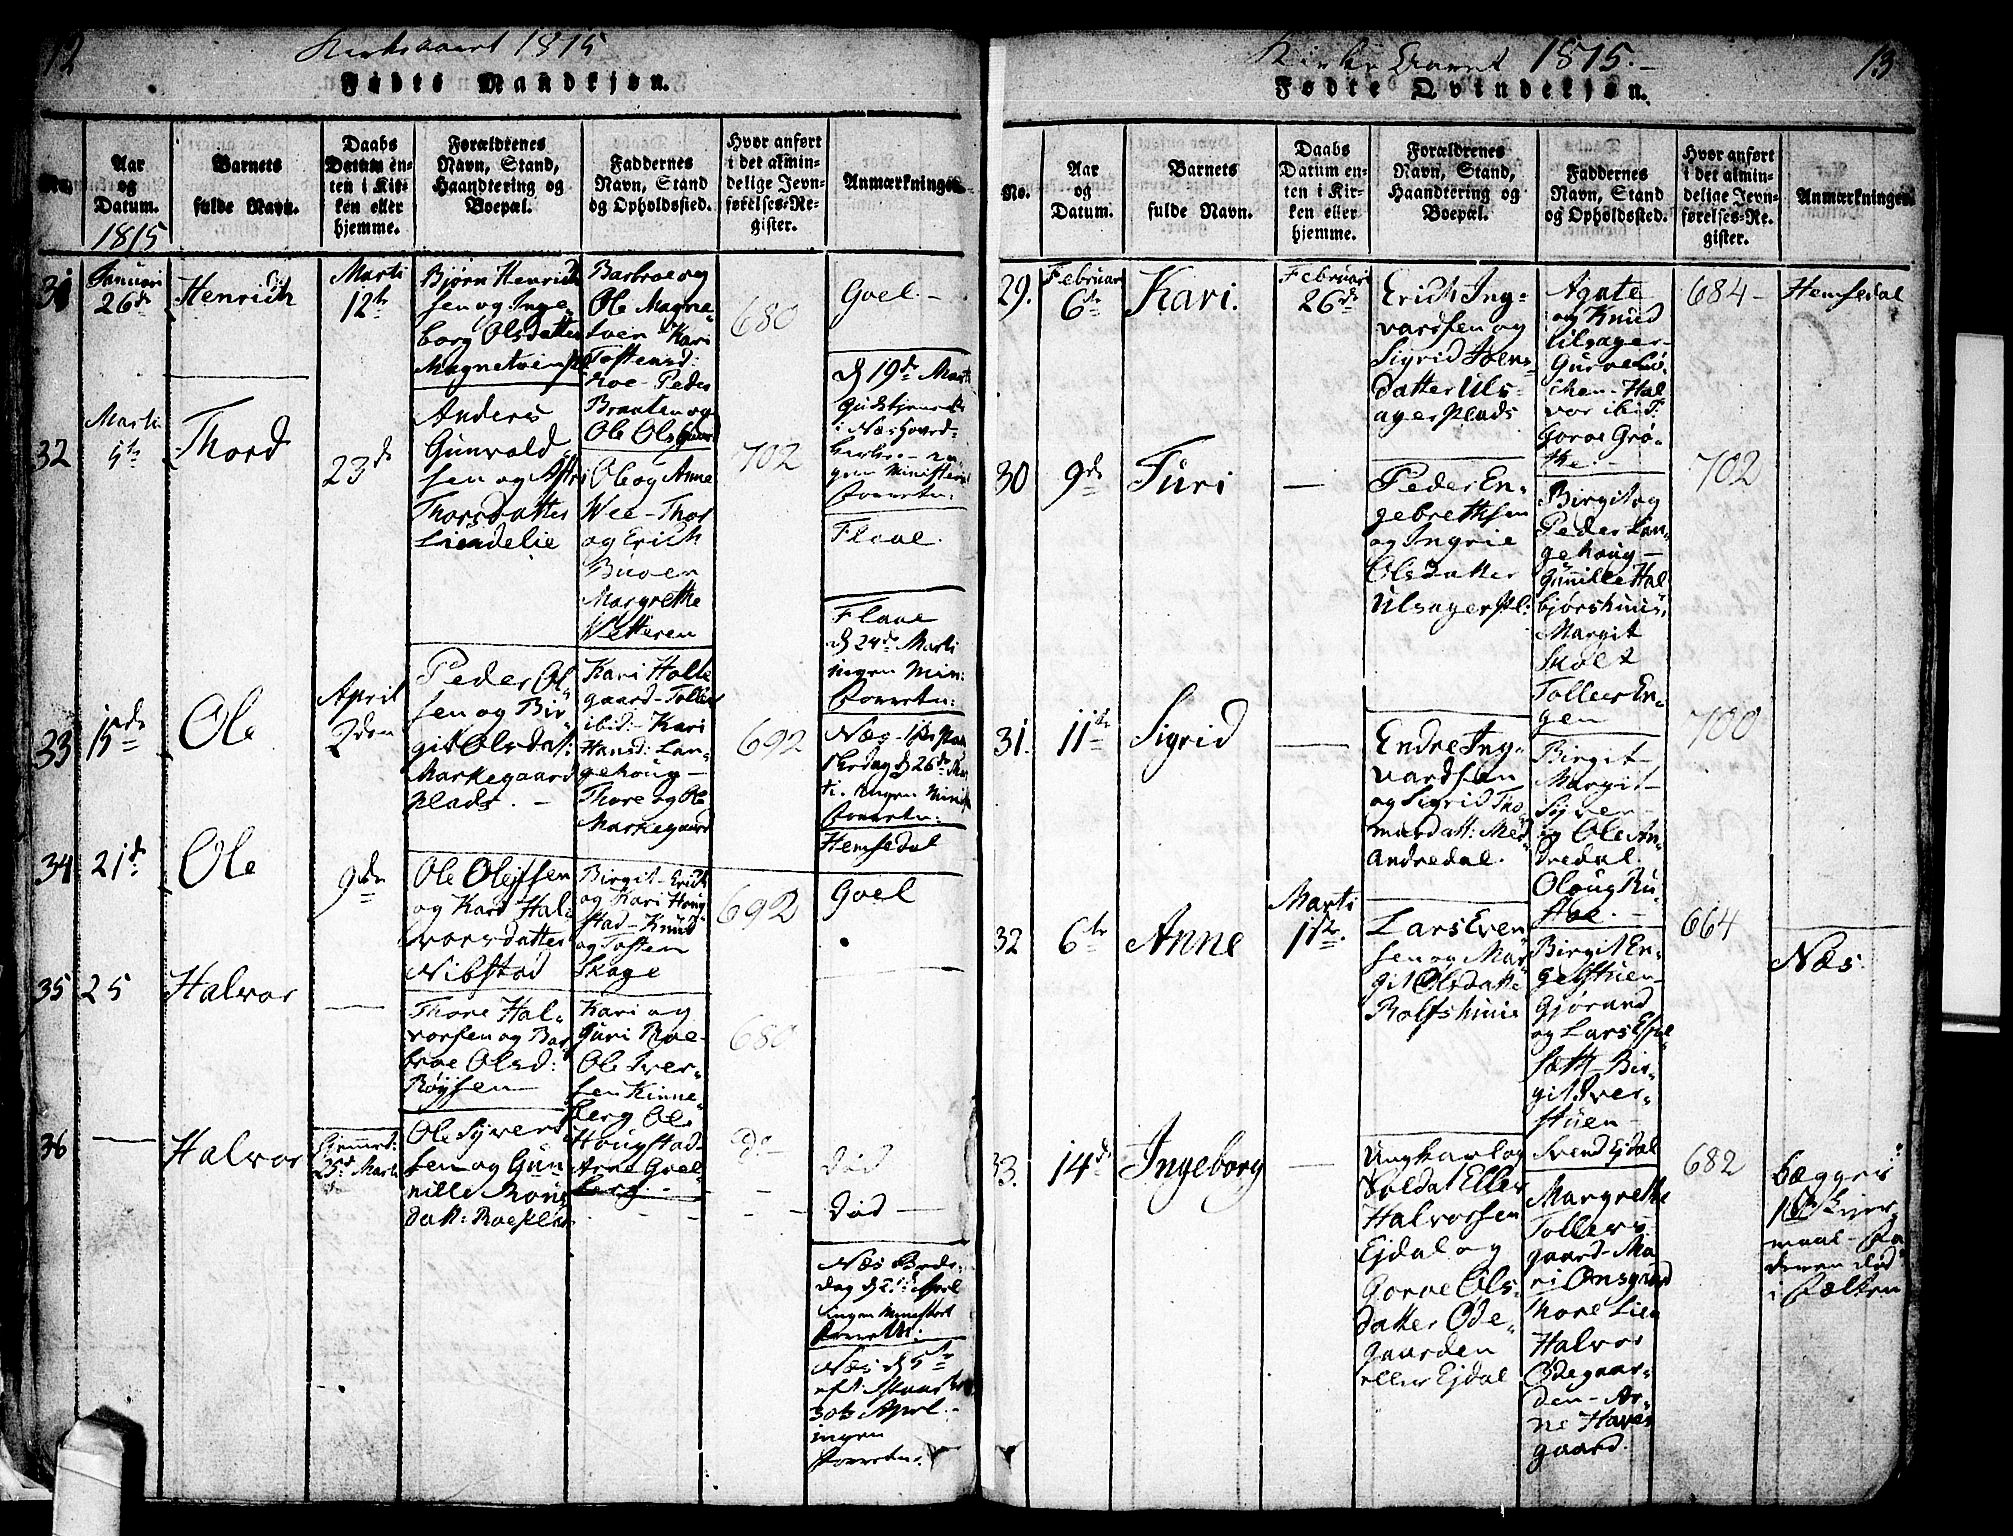 12
Kirkeaaret 1815
Fødte Mandkjøn.
No.
Aar
og
Datum.
1815
Barnets
fulde Navn.
Daabs
Datum en-
ten i Kir-
ken eller
hjemme.
Forældrenes
Navn, Stand,
Haandtering og
Boepæl.
Faddernes
Navn, Stand
og Opholdssted.
Hvor anført
i det almin-
delige Jevn-
førelses-Re-
gister.
Anmærkninger.
31
Januari
26de
Henrich
Marti
12te
Bjørn Henrich
sen og Inge-
borg Olsdatter
Barbroe og
Ole Magne-
tven Kari
Tostensd:
Roe - Peder
Braaten og
Ole Olsgaard
680
Goel. -
d 19de Marti
32
Marti
5te
Thord
23de
Anders
Gunvald-
sen og Astri
Thorsdatter
Liendelie
Ole og Anne
Wee - Thor
og Erich
Buoen
Margrethe
Vetteren
702
Flaae.
Flaae
d 24de Marti
ingen Min:
33
15de
Ole
April
2den
Peder Ol-
sen og Bir-
git Olsdat:
Markegaard
plads. -
Kari Holte
gaard - Tollef
ibid - Kari
Hansd: Lan-
gehoug -
Thore og Ole
Markegaard
692
Hemsedal
34
21de
Ole
9de
Ole Olessen
og Kari Hal-
vorsdatter
Nibstad
Birgit - Erich
og Kari Houg
stad - Knud
og Tosten
Skage
692
Goel
35
25
Halvor
—
Thore Hal-
vorsen og Bar
broe Olsd:
Røysen -
Kari og
Guri Roe -
Ole Iver-
sen Kinne-
berg Ole
Hougstad -
Arne Goel-
berg. -
680
36
—
Halvor
Hjemmed:
25de Marti
Ole Syver
sen og Gun
nille
datt: Roeplads
do -
død
død -
Næs Bede-
dag d 21de April
Næs d 5te
30te April -
ingen
13
Kirke Aaret 1815. -
Fødte Qvindekjøn.
No.
Aar
og
Datum.
Barnets
fulde Navn.
Daabs
Datum en-
ten i Kir-
ken eller
hjemme.
Forældrenes
Navn, Stand,
Haandtering og
Boepæl.
Faddernes
Navn, Stand,
og Opholdssted.
Hvor anført
i det almin-
delige Jevn-
førelses-Re-
gister.
Anmærkninger.
29.
Februar
6te
Kari.
Februar
26de
Erich Ing-
vardsen og
Sigrid Joens
datter Uls-
ager Plads
Agate
og Knud
Ulsager -
Halvor ibid.
Goroe Grø-
the. -
684 -
Hemsedal
30
9de
Turi
—
Peder En-
gebrethsen
og Ingrie
Olsdatter
Ulsager Pl:
Birgit og
Peder Lan-
gehoug -
Gunnille Hal-
bjørshuus -
Margit
Tollef En-
gen
702
31.
11te
Sigrid
—
Endre Ing-
vardsen
og Sigrid Tho
masdatt: Med
Andredal.
Birgit -
Margit -
Syver -
og Ole An-
dredal.
Oloug Ru-
stae. -
700
32
6te
Anne
Marti
1ste.
Lars Even
sen og Mar
git Olsdatter
Rolfshuus
Birgit En-
gelstuen -
Gjørand
og Lars Espe-
sætt - Bir-
git Iver-
stuen -
Svend Ejdal
664
Næs.
33.
14de
Ingeborg
—
Ungkarl og
Soldat Ellef
Halvorsen
Ejdal og
Goroe Ols-
datter Øde-
gaarden
eller Ejdal
Margrethe
Tollefs-
gaard - Ma
ri Onsgaard
Thore Lien
Halvor
Ødegaar-
den - Ar-
ne Haves
gaard.
682
begges
1ste Leier
maal - Fa
deren død
i Felten